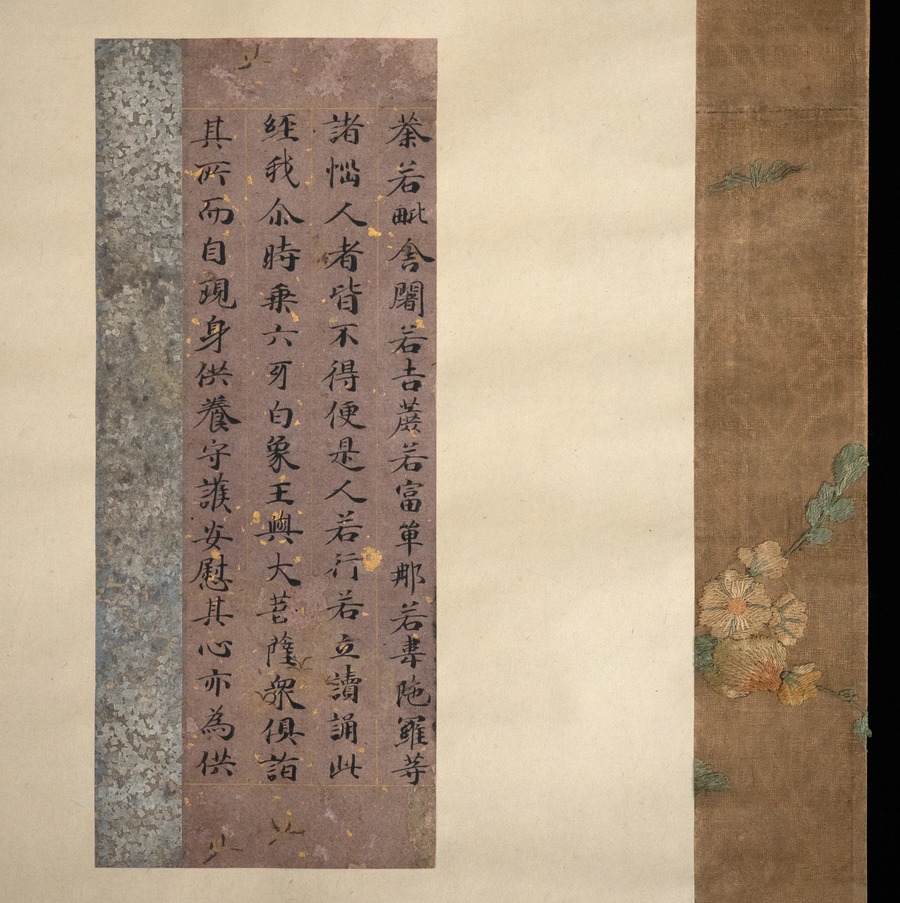 荼若毗舍闍若吉蔗若富單那若韋陁羅等
諸惱人者皆不得便是人若行若立讀誦此
經我尒時乗六牙白象王與大菩薩衆俱詣
其所而自現身供養守護安慰其心亦為供